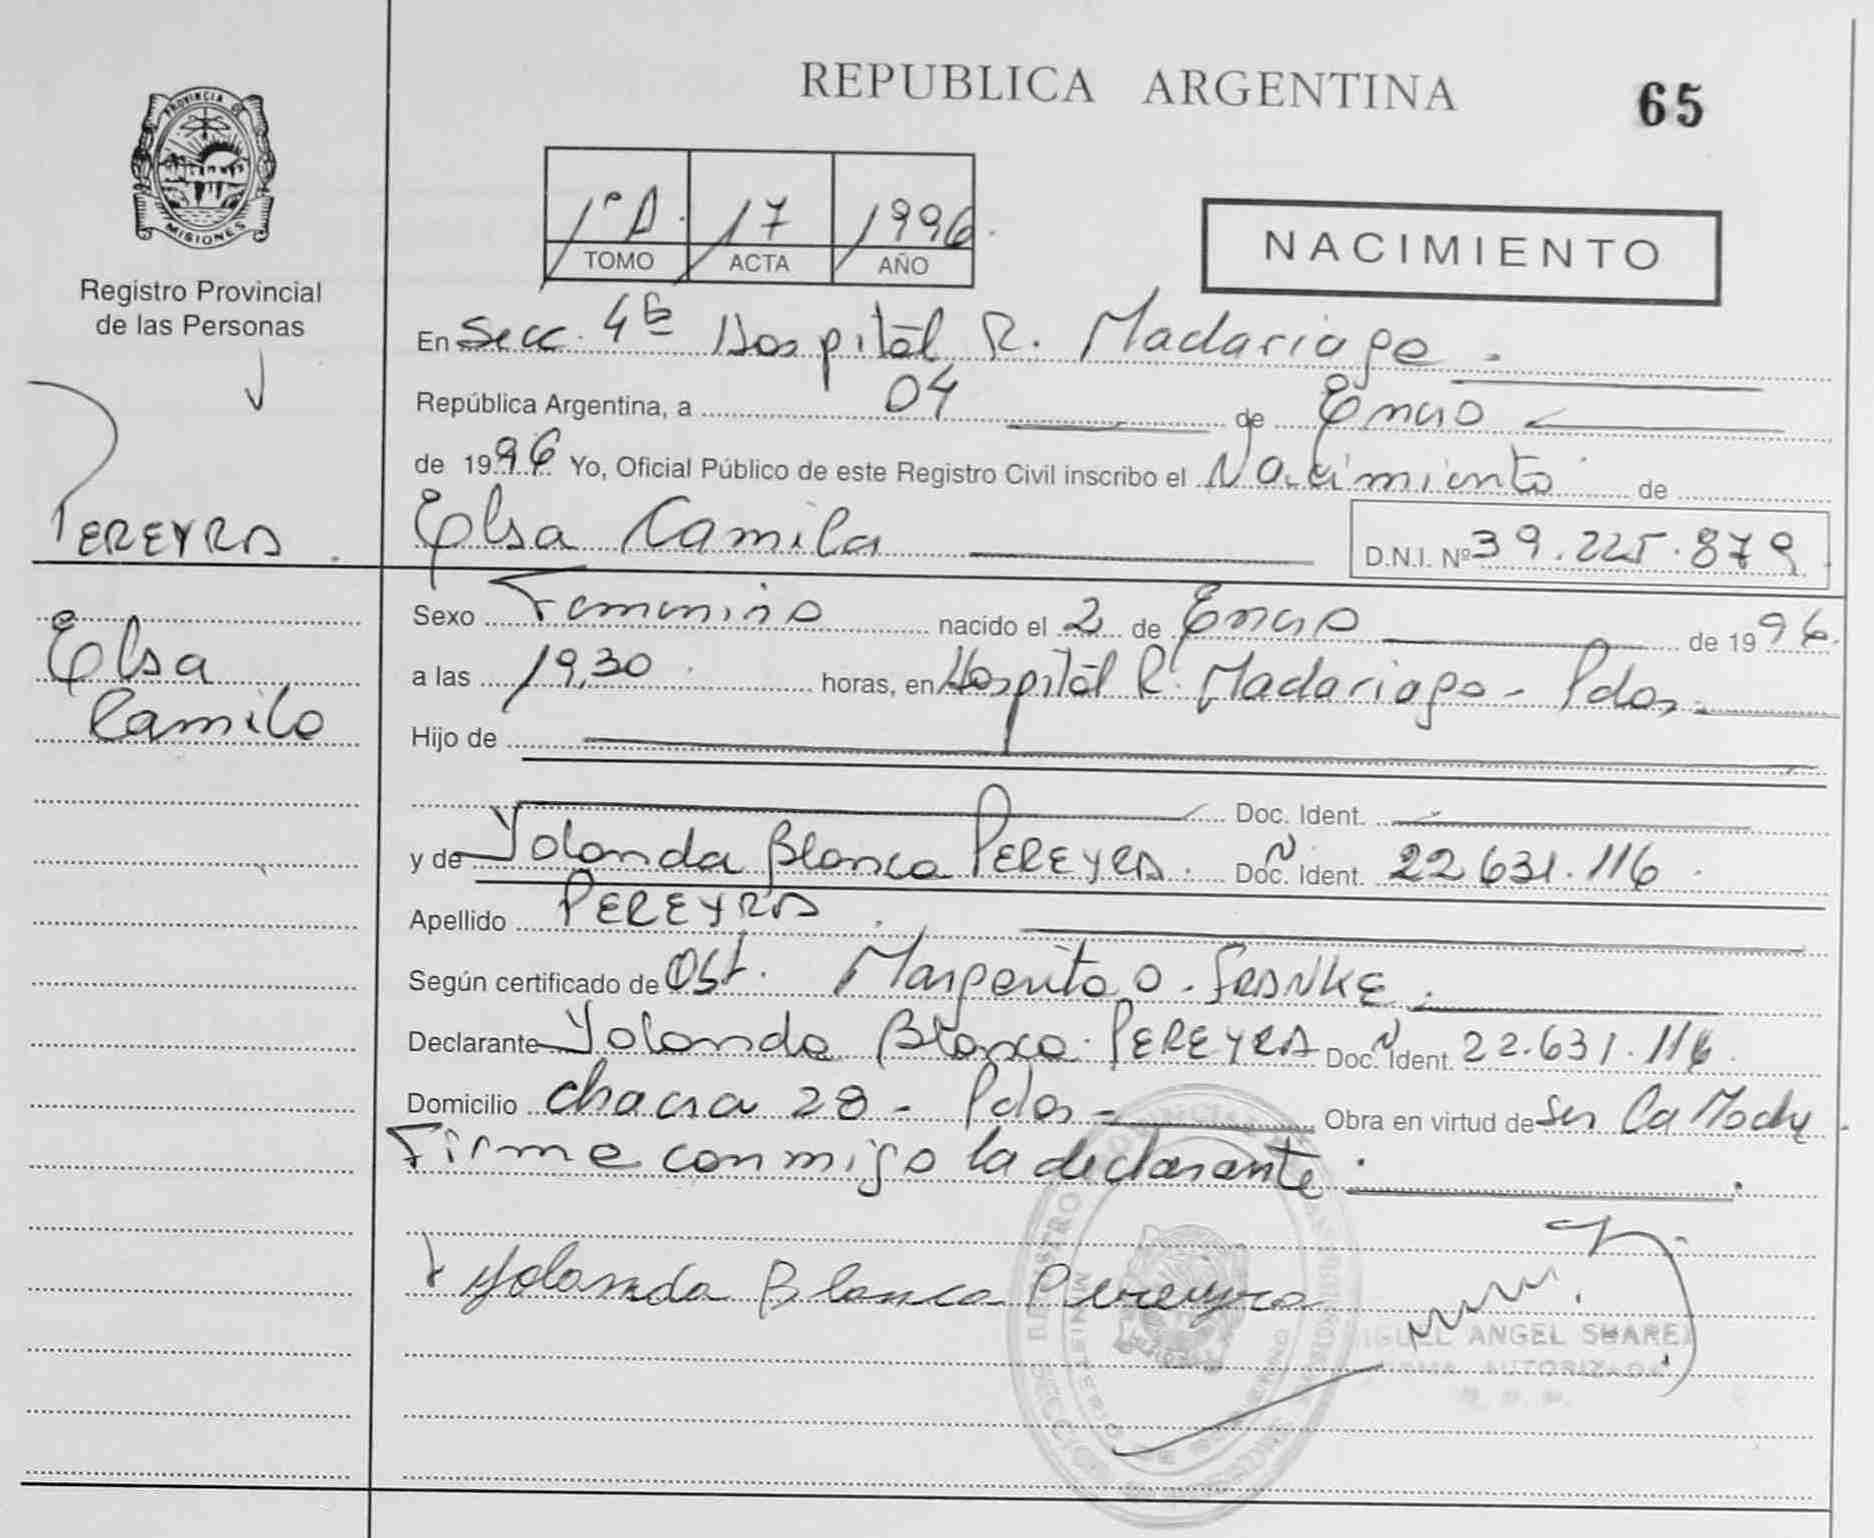 REPUBLICA ARGENTINA
65
PROVINCIA DE
MISIONES
Registro Provincial
de las Personas
PEREYRA.
Elsa
Camila
1º A. 17 1996.
TOMO ACTA AÑO
NACIMIENTO
En Secc. 4ta Hospital R. Madariaga.
República Argentina, a 04 de Enero
de 1996 Yo, Oficial Público de este Registro Civil inscribo el Nacimiento de
Elsa Camila
D.N.I. Nº 39.225.879
Sexo Femenino nacido el 2 de Enero de 1996.
a las 19,30 horas, en Hospital R. Madariaga - Pdas.
Hijo de
Doc. Ident.
y de Yolanda Blanca PEREYRA. Doc. Ident. 22.631.116
Apellido PEREYRA.
Según certificado de Ost. Margarita O. FRANKE.
Declarante Yolanda Blanca PEREYRA Doc. Ident. 22.631.116
Domicilio Chacra 28 - Pdas - Obra en virtud de Ser la Madre
Firme conmigo la declarante.
Yolanda Blanca Pereyra
ANGEL